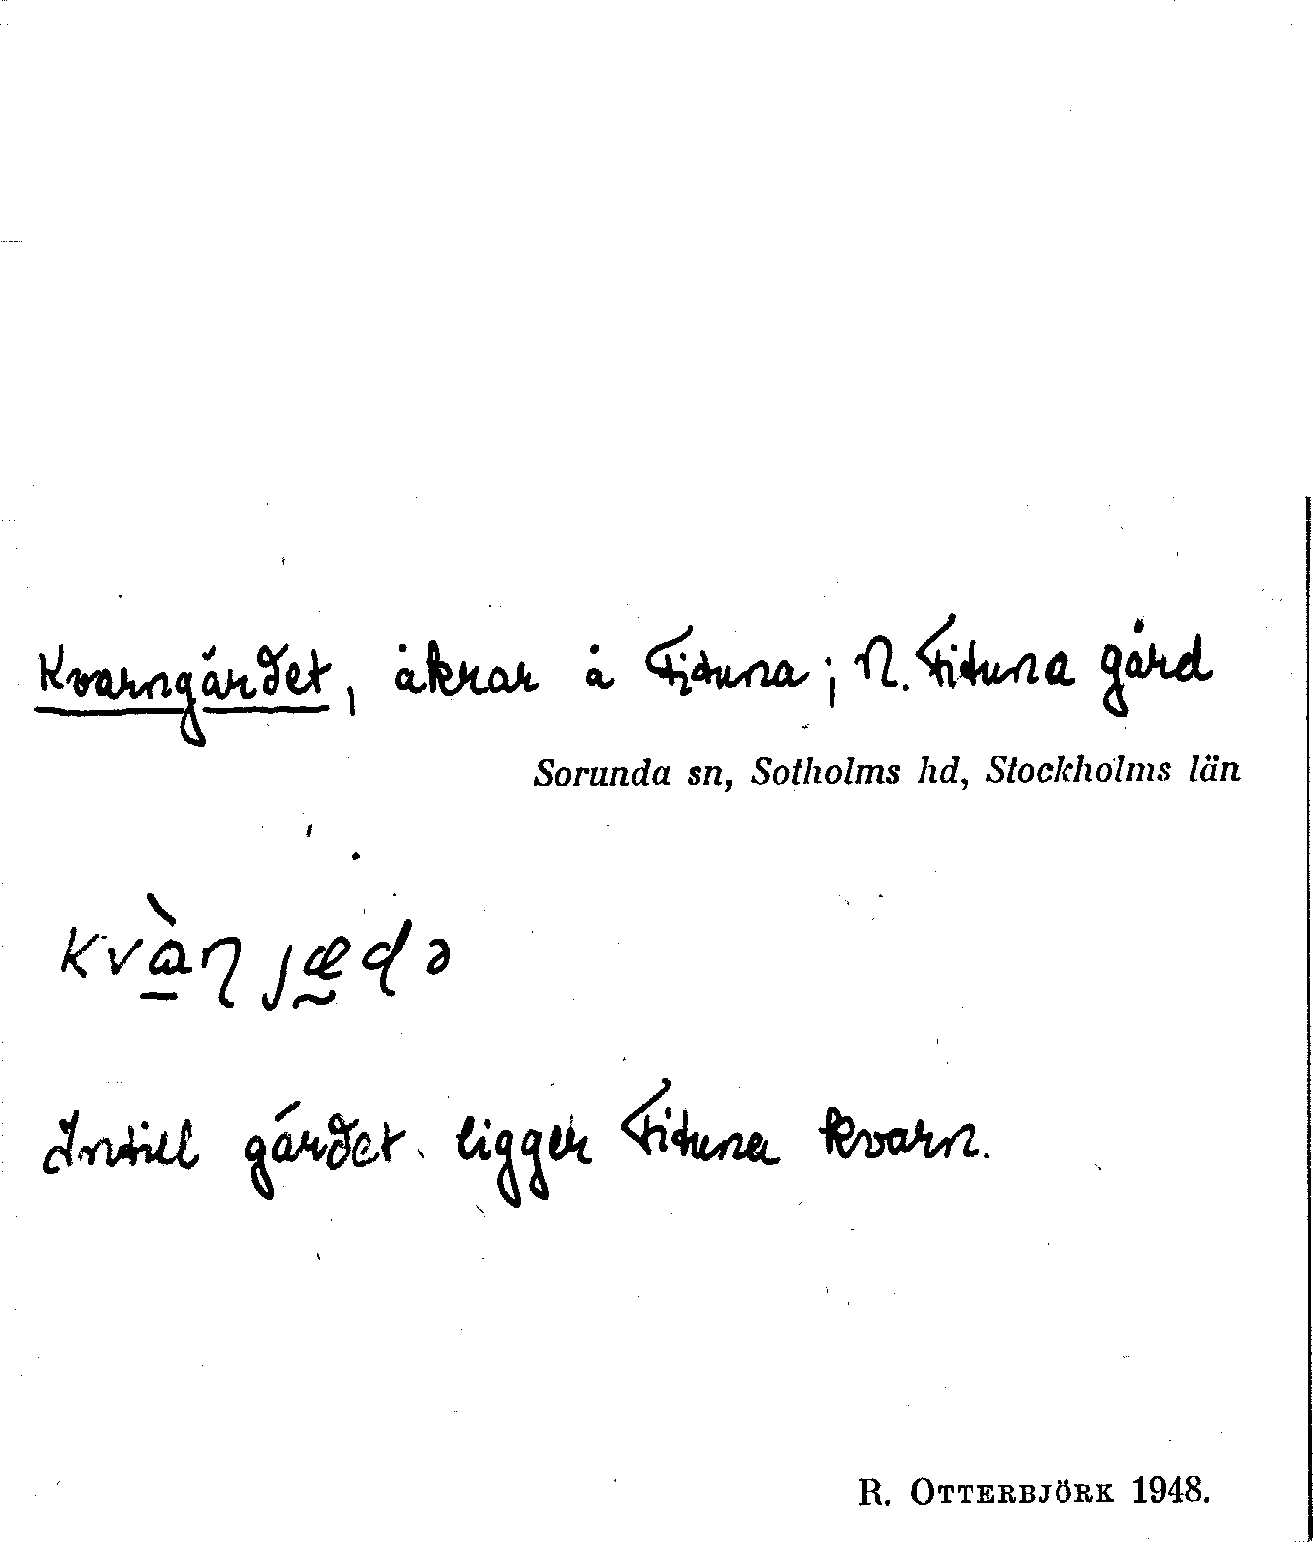 Kvarngärdet, åkrar å Fituna; N. Fituna gård
Sorunda sn, Sotholms hd, Stockholms län
kvàɳ ȷædə
Intill gärdet ligger Fituna kvarn.
R. OTTERBJÖRK 1948.